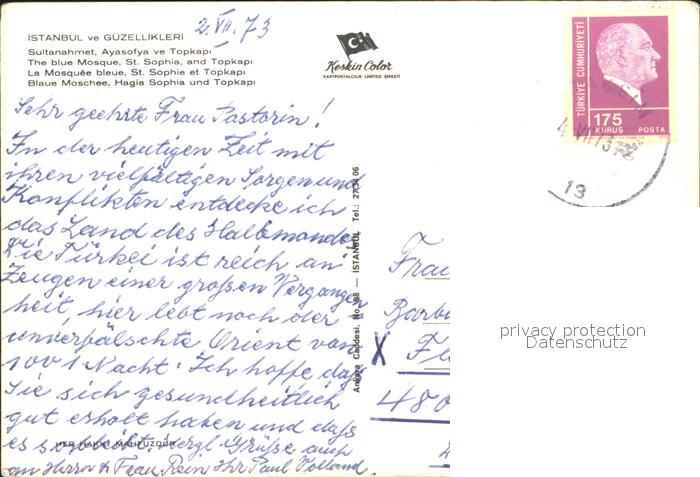 2.VII.73
İSTANBUL ve GÜZELLİKLERİ
Sultanahmet, Ayasofya ve Topkapı
The blue Mosque, St. Sophia, and Topkapı
La Mosquée bleue, St. Sophie et Topkapi
Blaue Moschee, Hagia Sophia und Topkapı
Keskin Color
KARTPOSTALCILIK LIMITED ŞİRKETİ
TÜRKİYE CUMHURİYETİ
175
KURUŞ POSTA
4 VII 73
13
Sehr geehrte Frau Pastorin!
In der heutigen Zeit mit
ihren vielfältigen Sorgen und
Konflikten entdecke ich
das Land des Halbmondes
Die Türkei ist reich an
Zeugen einer großen Vergangen
heit, hier lebt noch der
unverfälschte Orient von
1001 Nacht. Ich hoffe daß
Sie sich gesundheitlich
gut erholt haben und daß
es so bleibt. Herzl Grüße auch
an Herrn & Frau Rein Ihr Paul Volland.
HER HAKKI MAHFUZDUR
Ankara Caddesi, No. 98 — İSTANBUL Tel.: 27 34 06
Frau
Barb
X Fl
480
privacy protection
Datenschutz